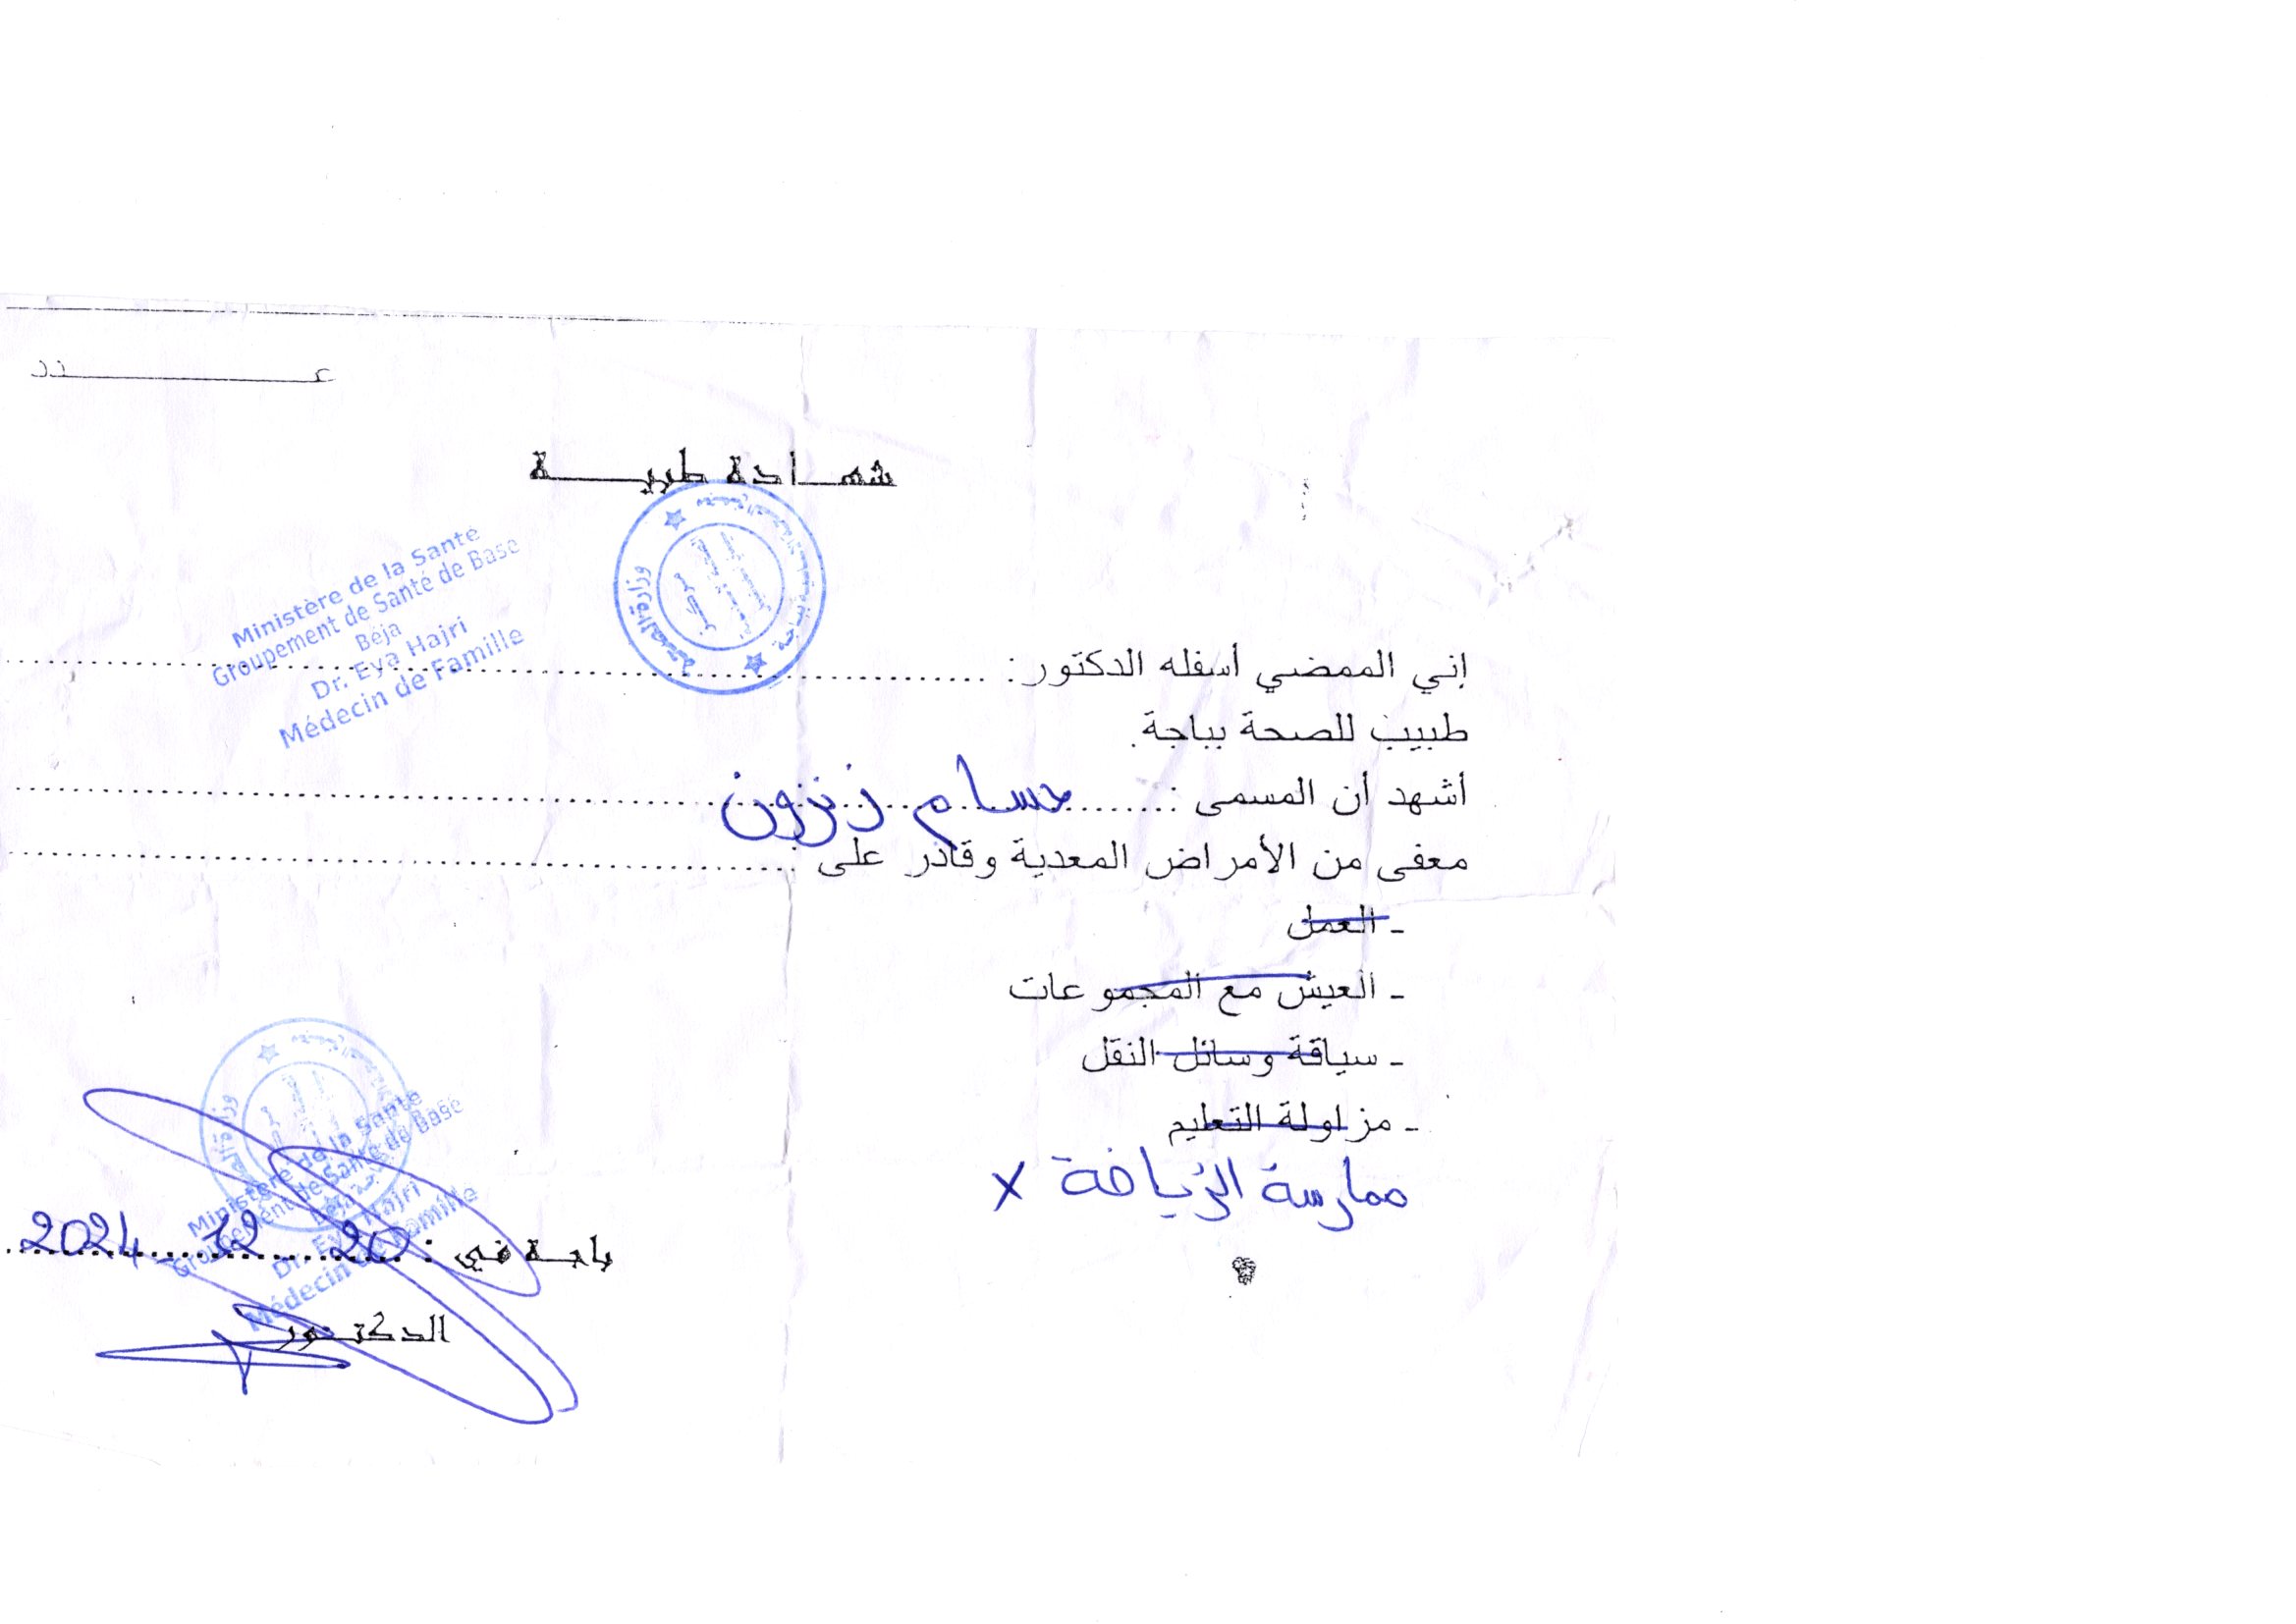 عـــــدد
شهـــادة طبيـــــة
وزارة الصحة
Ministère de la Santé
Groupement de Santé de Base
Béja
Dr. Eya Hajri
Médecin de Famille
إني الممضي أسفله الدكتور :
طبيب للصحة بباجة.
أشهد أن المسمى : حسام زنزون
معفى من الأمراض المعدية وقادر على :
- العمل
- العيش مع المجموعات
- سياقة وسائل النقل
- مزاولة التعليم
ممارسة الرياضة x
Ministère de la Santé
Groupement de Santé de Base
Béja
Dr. Eya Hajri
Médecin de Famille
باجـة في : 20 12 2024
الدكتـور